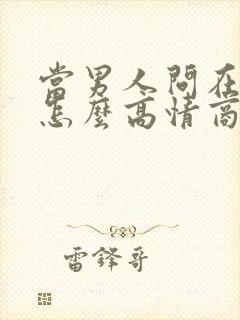 當男人問在
怎麼高情商
雷鋒哥